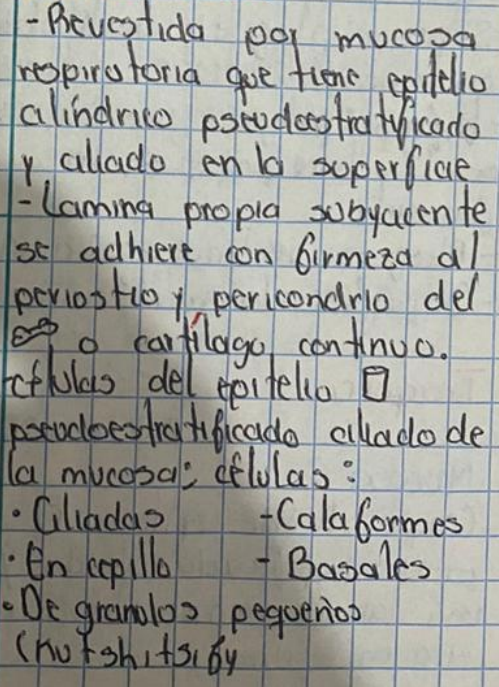 - Revestida por mucosa
respiratoria que tiene epitelio
cilíndrico pseudoestratificado
y ciliado en la superficie
- Lamina propia subyacente
se adhiere con firmeza al
periostio y pericondrio del
o cartílago continuo.
células del epitelio
pseudoestratificado ciliado de
la mucosa: células:
• Ciliadas - Caliciformes
• En cepillo - Basales
• De granulos pequeños